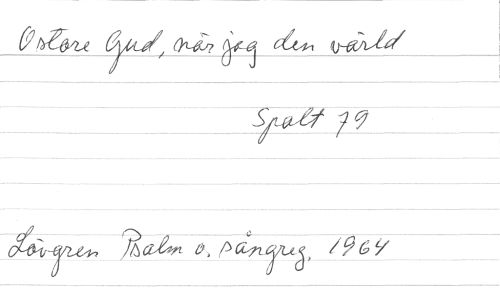 O store Gud, när jag den värld
Spalt 79
Lövgren Psalm o. sångreg. 1964